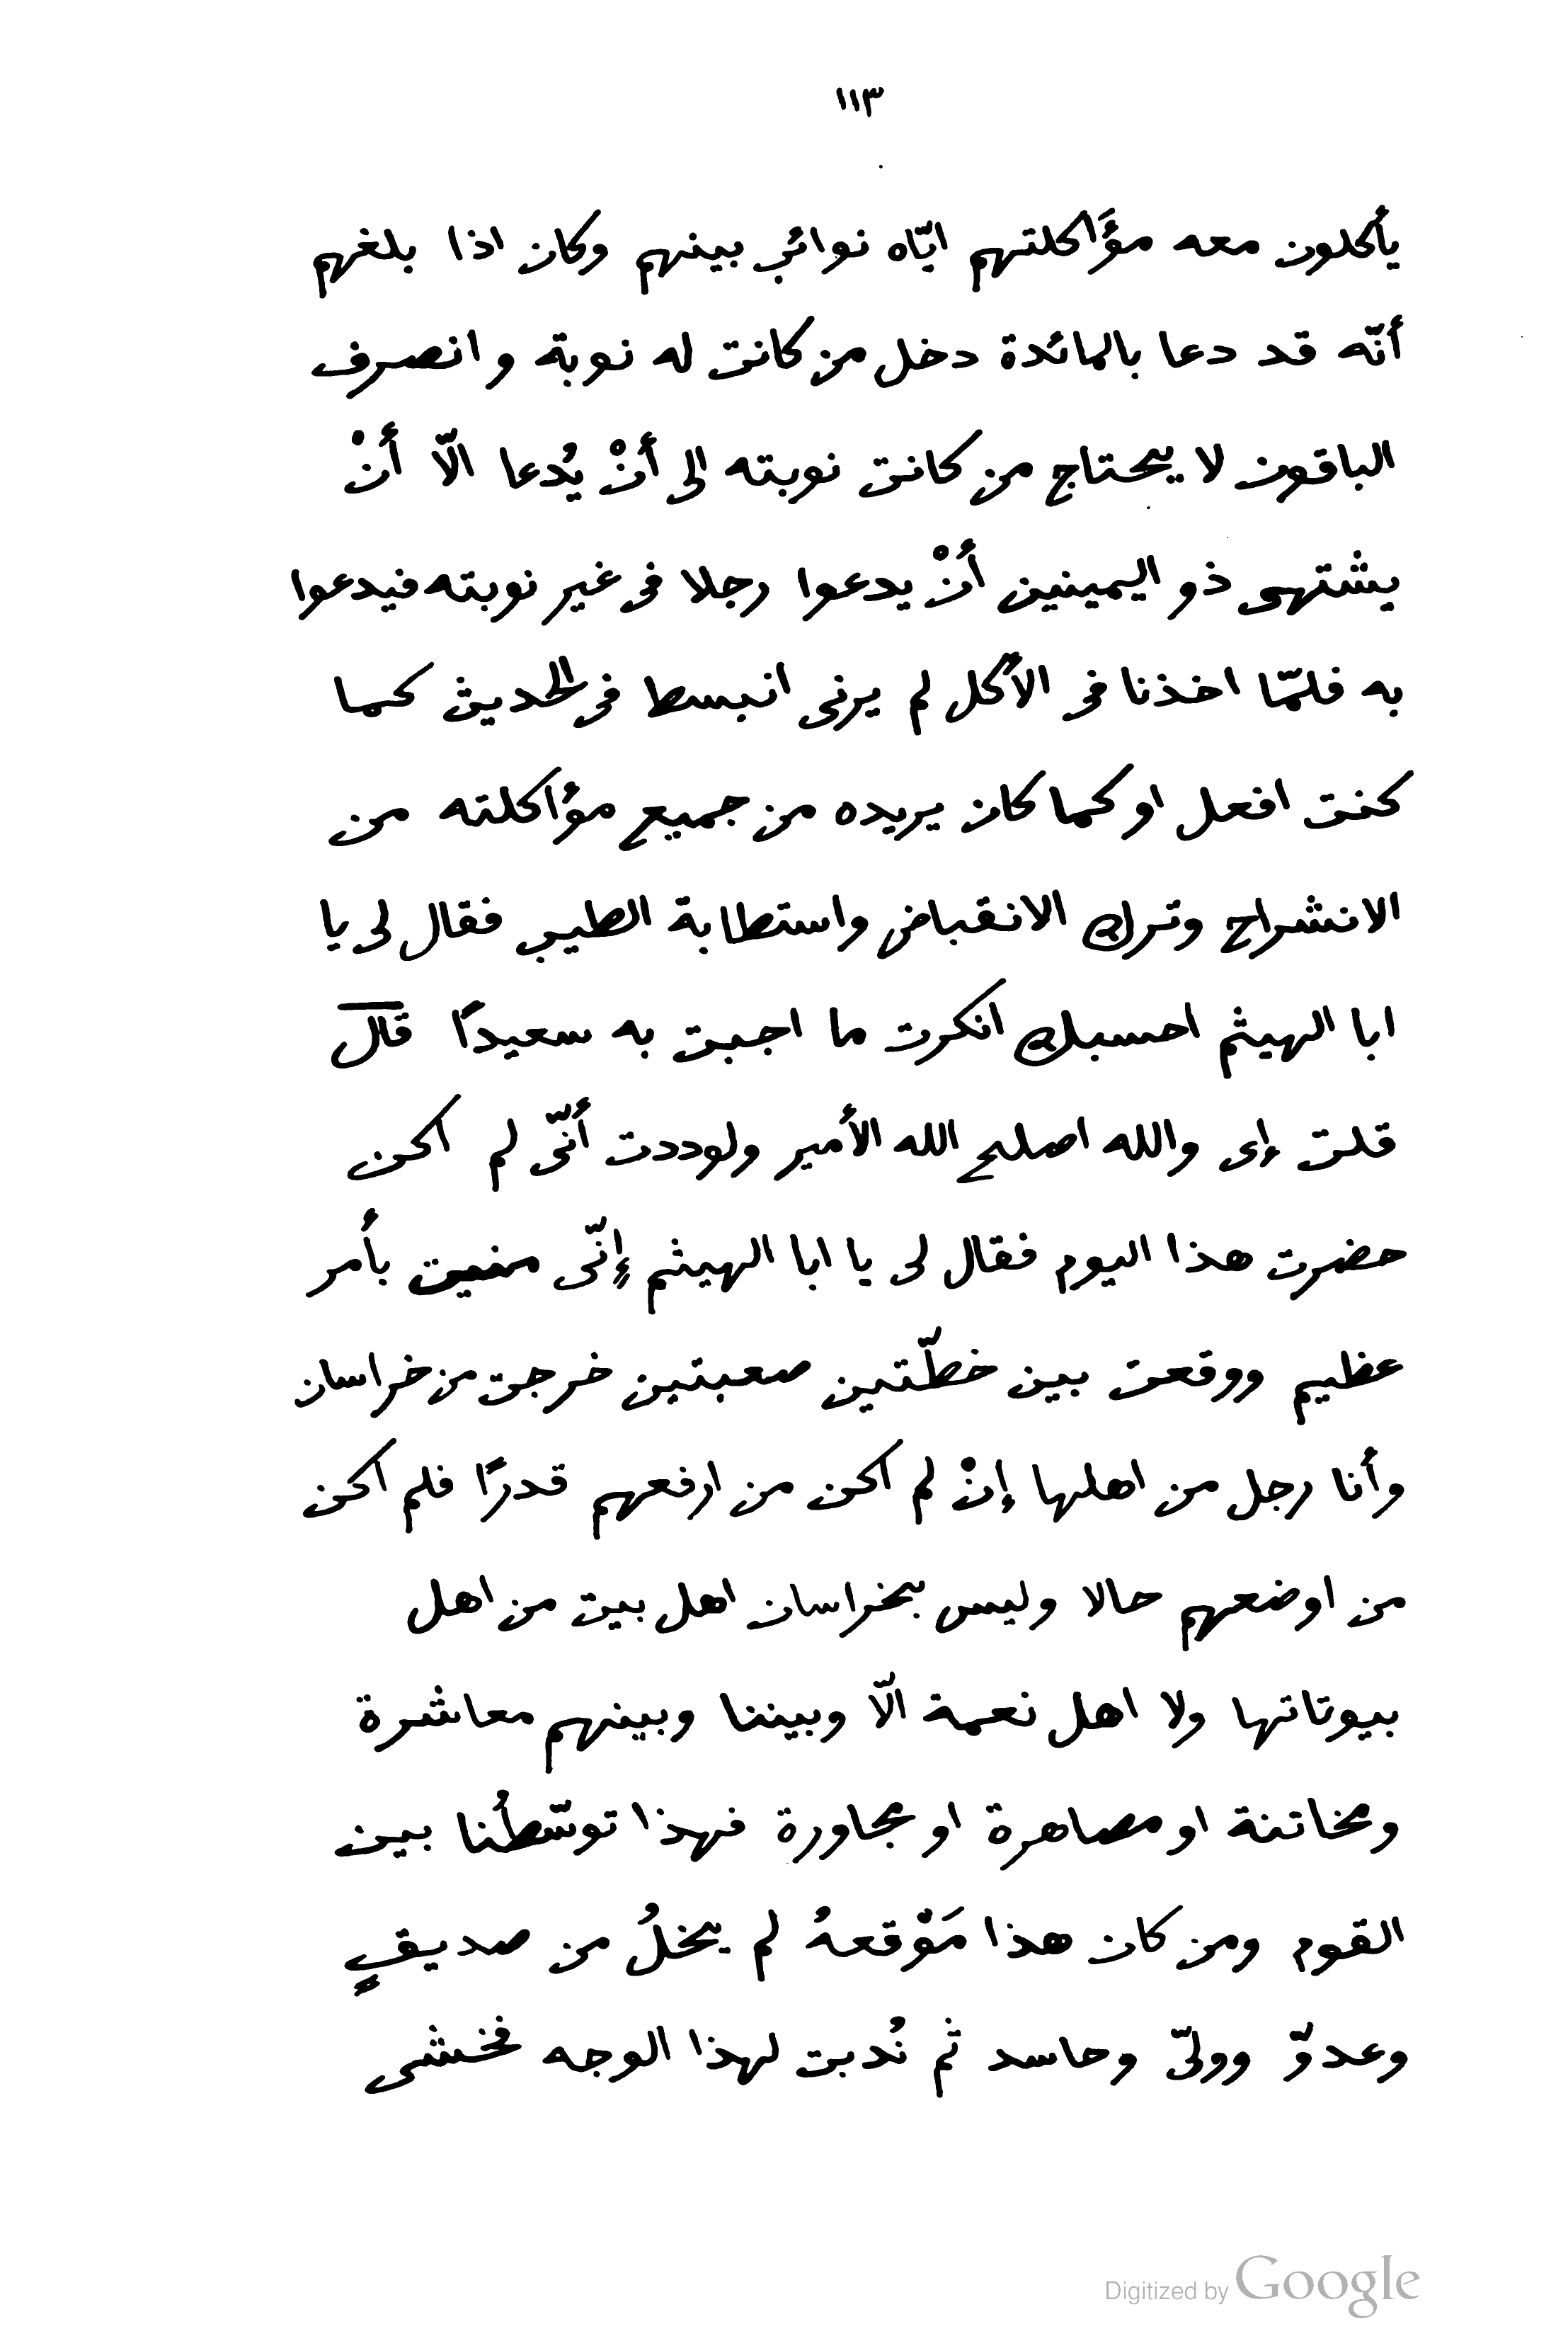 ١١٣
يأكلون معه مؤَاكلتهم ايّاه نوائب بينهم وكان اذا بلغهم
أنّه قد دعا بالمائدة دخل من كانت له نوبة وانصرف
الباقون لا يحتاج من كانت نوبته الى أنْ يُدعا الّا أنْ
يشتهى ذو اليمينين أنْ يدعوا رجلا فى غير نوبته فيدعوا
به فلمّا اخذنا فى الأكل لم يرنى انبسط فى الحديث كما
كنت افعل او كما كان يريده من جميع مؤاكلته من
الانشراح وترك الانقباض واستطابة الطيب فقال لى يا
ابا الهيثم احسبك انكرت ما اجبت به سعيدًا قال
قلت إى والله اصلح الله الأمير ولوددت أنّى لم اكن
حضرت هذا اليوم فقال لى يا ابا الهيثم إنّى منيت بأمر
عظيم ووقعت بين خطّتين صعبتين خرجت من خراسان
وأنا رجل من اهلها إنْ لم اكن من ارفعهم قدرًا فلم اكن
من اوضعهم حالا وليس بخراسان اهل بيت من اهل
بيوتاتها ولا اهل نعمة الّا وبيننا وبينهم معاشرة
ومخاتنة او مصاهرة او مجاورة فهذا توسّطُنا بين
القوم ومن كان هذا مَوْقعهُ لم يخلُ من صديقٍ
وعدوّ ووليّ وحاسد ثم نُدبت لهذا الوجه فخشى
Digitized by Google